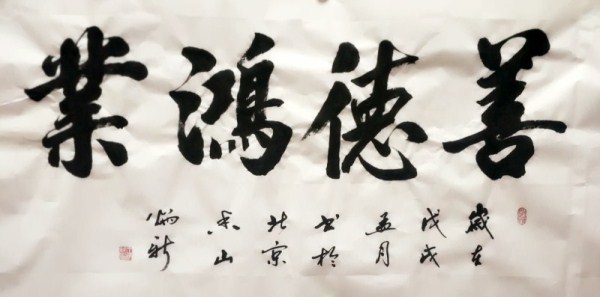 善德鴻業
歲在
戊戌
孟月
书於
北京
香山
炳新